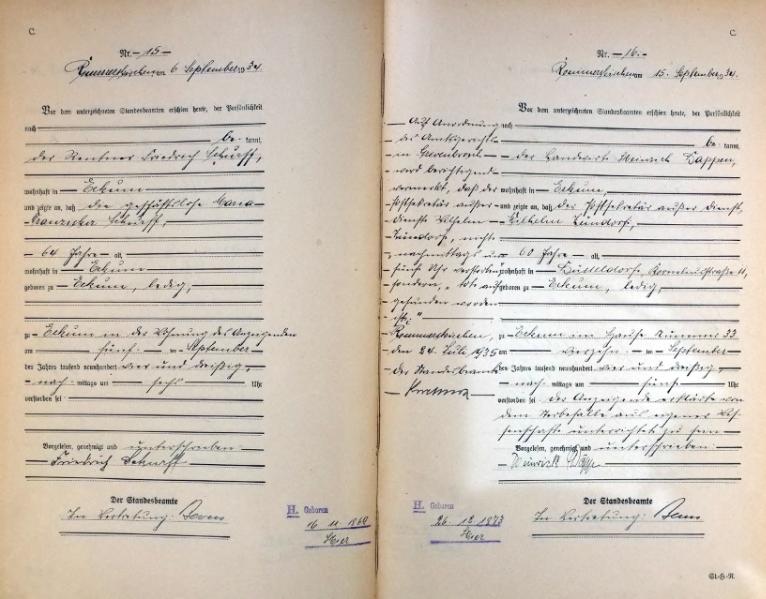 C.
Nr. 15
Rommerskirchen am 6 September 1934.
Vor dem unterzeichneten Standesbeamten erschien heute, der Persönlichkeit
nach be- kannt,
der Rentner Friedrich Schurff,
wohnhaft in Eckum
und zeigte an, daß die geschäftslose Maria
Franziska Schurff,
64 Jahre alt,
wohnhaft in Eckum
geboren zu Eckum, ledig,
zu Eckum in der Wohnung des Anzeigenden
am fünf- ten September
des Jahres tausend neunhundert vier und dreißig
nach mittags um sechs Uhr
verstorben sei
Vorgelesen, genehmigt und unterschrieben
Friedrich Schurff
Der Standesbeamte
In Vertretung:
H. Geboren
16 11 1869
Hier
C.
Nr. 16.
Rommerskirchen am 15. September 1934.
Vor dem unterzeichneten Standesbeamten erschien heute, der Persönlichkeit
nach be- kannt,
der Landwirt Heinrich Dappen,
wohnhaft in Eckum,
und zeigte an, daß der Postsekretär außer Dienst,
Wilhelm Zündorf,
60 Jahre alt,
wohnhaft in Düsseldorf, Korneliusstraße 11,
geboren zu Eckum, ledig,
zu Eckum im Hause Nummer 33
am vierzehn- ten September
des Jahres tausend neunhundert vier und dreißig
nach mittags um fünf Uhr
verstorben sei Der Anzeigende erklärte von
dem Sterbefalle aus eigener Wis-
senschaft unterrichtet zu sein
Vorgelesen, genehmigt und unterschrieben
Heinrich
Der Standesbeamte
In Vertretung:
Auf Anordnung
des Amtsgerichts
in Grevenbroich
wird berichtigend
vermerkt, daß der
Postsekretär außer
Dienst Wilhelm
Zündorf, nicht
nachmittags um
fünf Uhr verstorben,
sondern, tot auf
gefunden worden
ist."
Rommerskirchen,
den 24 Juli 1935
Der Standesbeamte
H. Geboren
26. 12 1873
Hier
St-H-R.